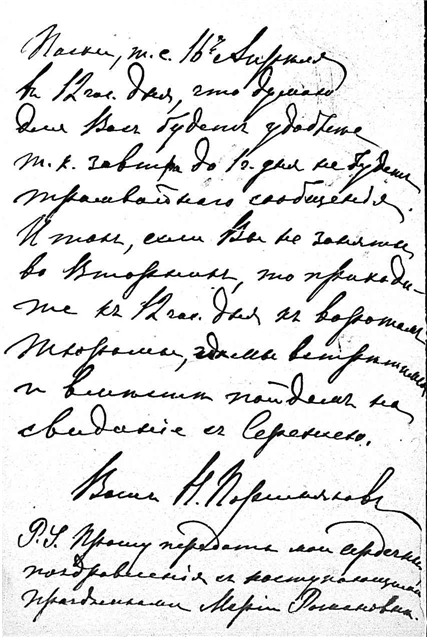 Пасхи, т.е. 16го Апреля
въ 12 час. дня, что думаю
для Васъ будетъ удобнѣе
т.к. завтра до 1 ч. дня не будетъ
трамвайнаго сообщенія.
Итакъ, если Вы не заняты
во Вторникъ, то приходи-
те къ 12 час. дня къ воротамъ
тюрьмы, где мы встрѣтимся
и вмѣстѣ пойдемъ на
свиданіе съ Сережею.
Вашъ Н.
P.S. Прошу передать мои сердечныя
поздравленія съ наступающими
праздниками Маріи Романовнѣ.